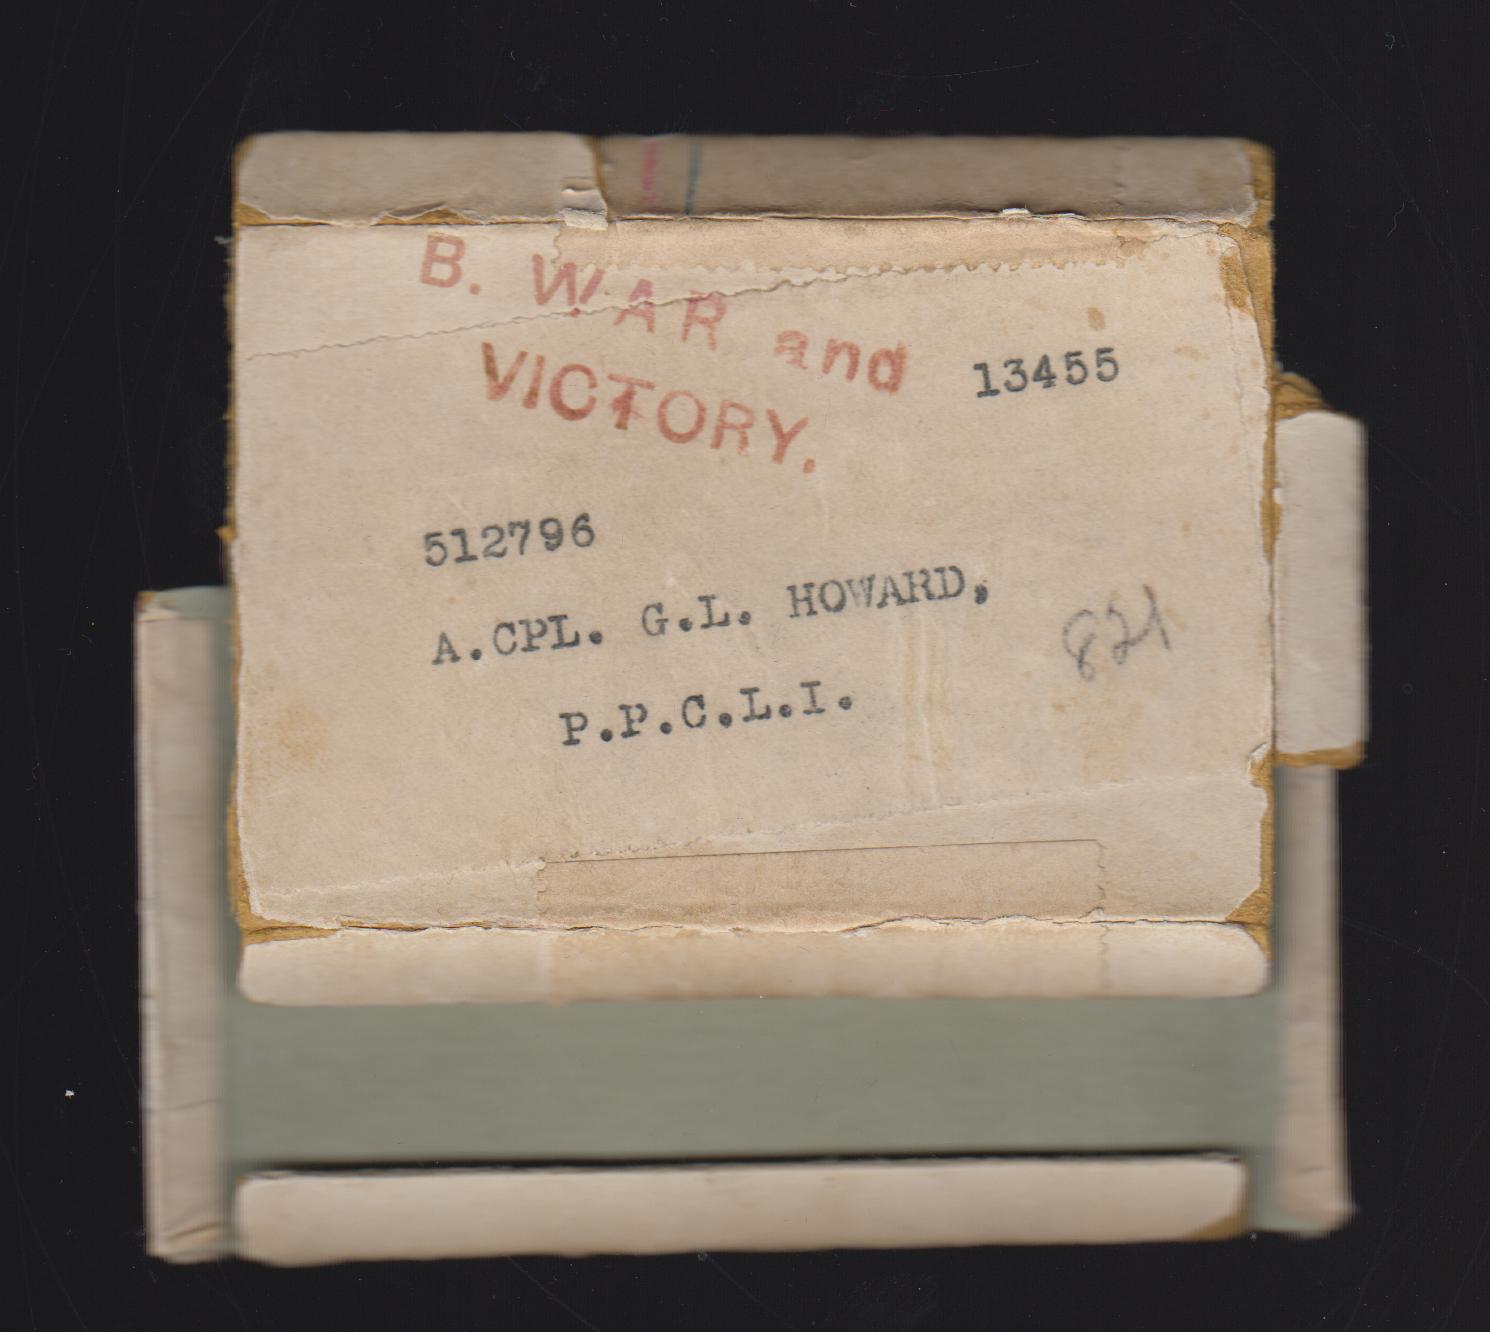 B. WAR and
VICTORY.
13455
512796
A.CPL. G.L. HOWARD,
P.P.C.L.I.
821